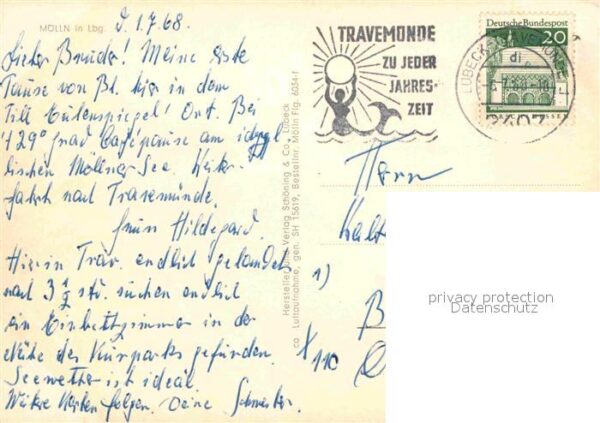 MÖLLN in Lbg.
d. 1.7.68.
Lieber Bruder! Meine erste
Pause von Bl. hier in dem
Till Eulenspiegel Ort. Bei
29° grad Cafépause am idyl
lischen Möllner See. Weiter-
fahrt nach Travemünde.
Gruss Hildegard.
Hier in Trav. endlich gelandet
nach 3 1/2 Std. suchen endlich
ein Einbettzimmer in der
Nähe des Kurparks gefunden.
Seewetter ist ideal
Weitere Karten folgen. Deine Schwester.
Hersteller und Verlag Schöning & Co., Lübeck
co Luftaufnahme, gen. SH 15619, Bestellnr. Mölln Flg. 6054-f
TRAVEMÜNDE
ZU JEDER
JAHRES-
ZEIT
Deutsche Bundespost
20
LÜBECK-TRAVEMÜNDE
di
2407
Herrn
1)
110
privacy protection
Datenschutz